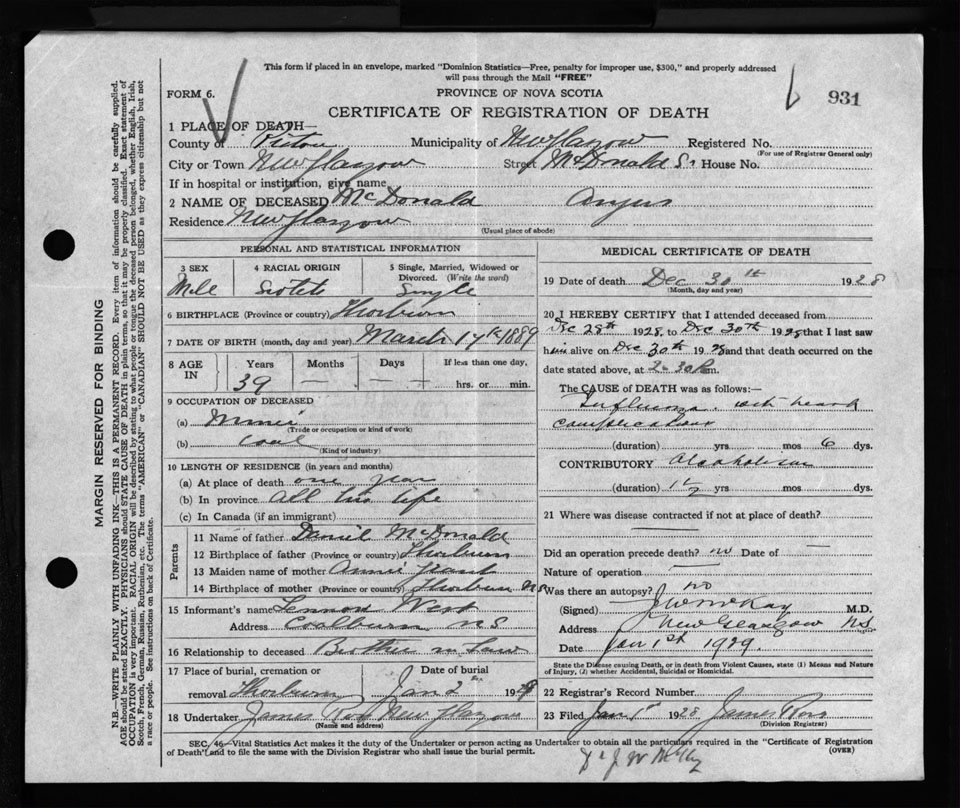 This form if placed in an envelope, marked "Dominion Statistics—Free, penalty for improper use, $300," and properly addressed
will pass through the Mail "FREE"
FORM 6.
PROVINCE OF NOVA SCOTIA
931
CERTIFICATE OF REGISTRATION OF DEATH
1 PLACE OF DEATH—
County of Pictou Municipality of New Glasgow Registered No.
(For use of Registrar General only)
City or Town New Glasgow Street McDonald St House No.
If in hospital or institution, give name
2 NAME OF DECEASED McDonald Angus
Residence New Glasgow
(Usual place of abode)
PERSONAL AND STATISTICAL INFORMATION
3 SEX 4 RACIAL ORIGIN 5 Single, Married, Widowed or
Divorced. (Write the word)
Male Scotch Single
6 BIRTHPLACE (Province or country) Thorburn
7 DATE OF BIRTH (month, day and year) March 17th 1889
8 AGE IN Years Months Days If less than one day,
39 — — hrs. or min.
9 OCCUPATION OF DECEASED
(a) Miner
(Trade or occupation or kind of work)
(b) Coal
(Kind of industry)
10 LENGTH OF RESIDENCE (in years and months)
(a) At place of death one year
(b) In province All his life
(c) In Canada (if an immigrant)
Parents
11 Name of father Daniel McDonald
12 Birthplace of father (Province or country) Thorburn
13 Maiden name of mother Annie Grant
14 Birthplace of mother (Province or country) Thorburn NS
15 Informant's name Lennon West
Address Coalburn NS
16 Relationship to deceased Brother in Law
17 Place of burial, cremation or Date of burial
removal Thorburn Jan 2nd 1929
18 Undertaker James Roy New Glasgow
(Name and address)
MEDICAL CERTIFICATE OF DEATH
19 Date of death Dec 30th 1928
(Month, day and year)
20 I HEREBY CERTIFY that I attended deceased from
Dec 28th 1928 to Dec 30th 1928 that I last saw
him alive on Dec 30th 1928 and that death occurred on the
date stated above, at 2.30 P.m.
The CAUSE of DEATH was as follows:—
Influenza with heart
complications
(duration) yrs mos 6 dys.
CONTRIBUTORY Alcoholism
(duration) yrs mos dys.
21 Where was disease contracted if not at place of death?
—
Did an operation precede death? no Date of —
Nature of operation —
Was there an autopsy? no
(Signed) J W McKay M.D.
Address New Glasgow NS
Date Jan 1st 1929.
State the Disease causing Death, or in death from Violent Causes, state (1) Means and Nature
of Injury, (2) whether Accidental, Suicidal or Homicidal.
22 Registrar's Record Number
23 Filed Jan 1st 1928 James Ross
(Division Registrar)
SEC. 46—Vital Statistics Act makes it the duty of the Undertaker or person acting as Undertaker to obtain all the particulars required in the "Certificate of Registration
of Death" and to file the same with the Division Registrar who shall issue the burial permit. (OVER)
Dr J W McKay
MARGIN RESERVED FOR BINDING
N.B.—WRITE PLAINLY WITH UNFADING INK—THIS IS A PERMANENT RECORD. Every item of information should be carefully supplied.
AGE should be stated EXACTLY. PHYSICIANS should STATE CAUSE OF DEATH in plain terms, so that it may be properly classified. Exact statement of
OCCUPATION is very important. RACIAL ORIGIN will be described by stating to what people or tongue the deceased person belonged, whether English, Irish,
Scotch, French, German, Russian, Ruthenian, etc. The terms "AMERICAN" or "CANADIAN" SHOULD NOT BE USED as they express citizenship but not
a race or people. See instructions on back of Certificate.